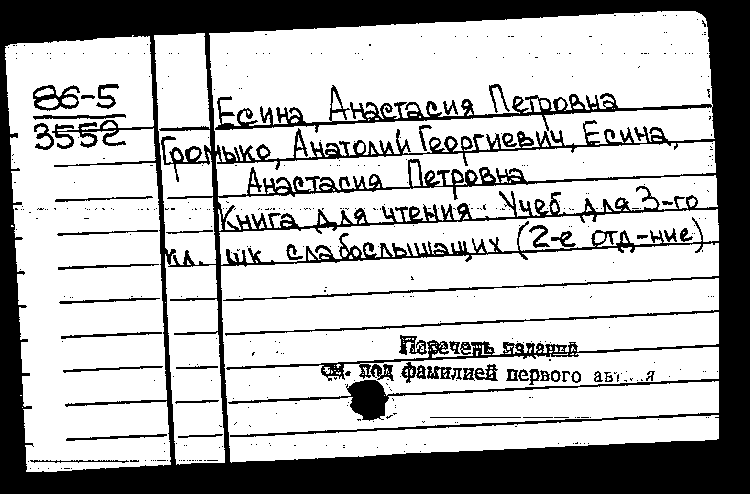 86-5
3552
Есина, Анастасия Петровна
Громыко, Анатолий Георгиевич, Есина,
Анастасия Петровна
Книга для чтения: Учеб. для 3-го
кл. шк. слабослышащих (2-е отд-ние)
Перечень изданий
см. под фамилией первого